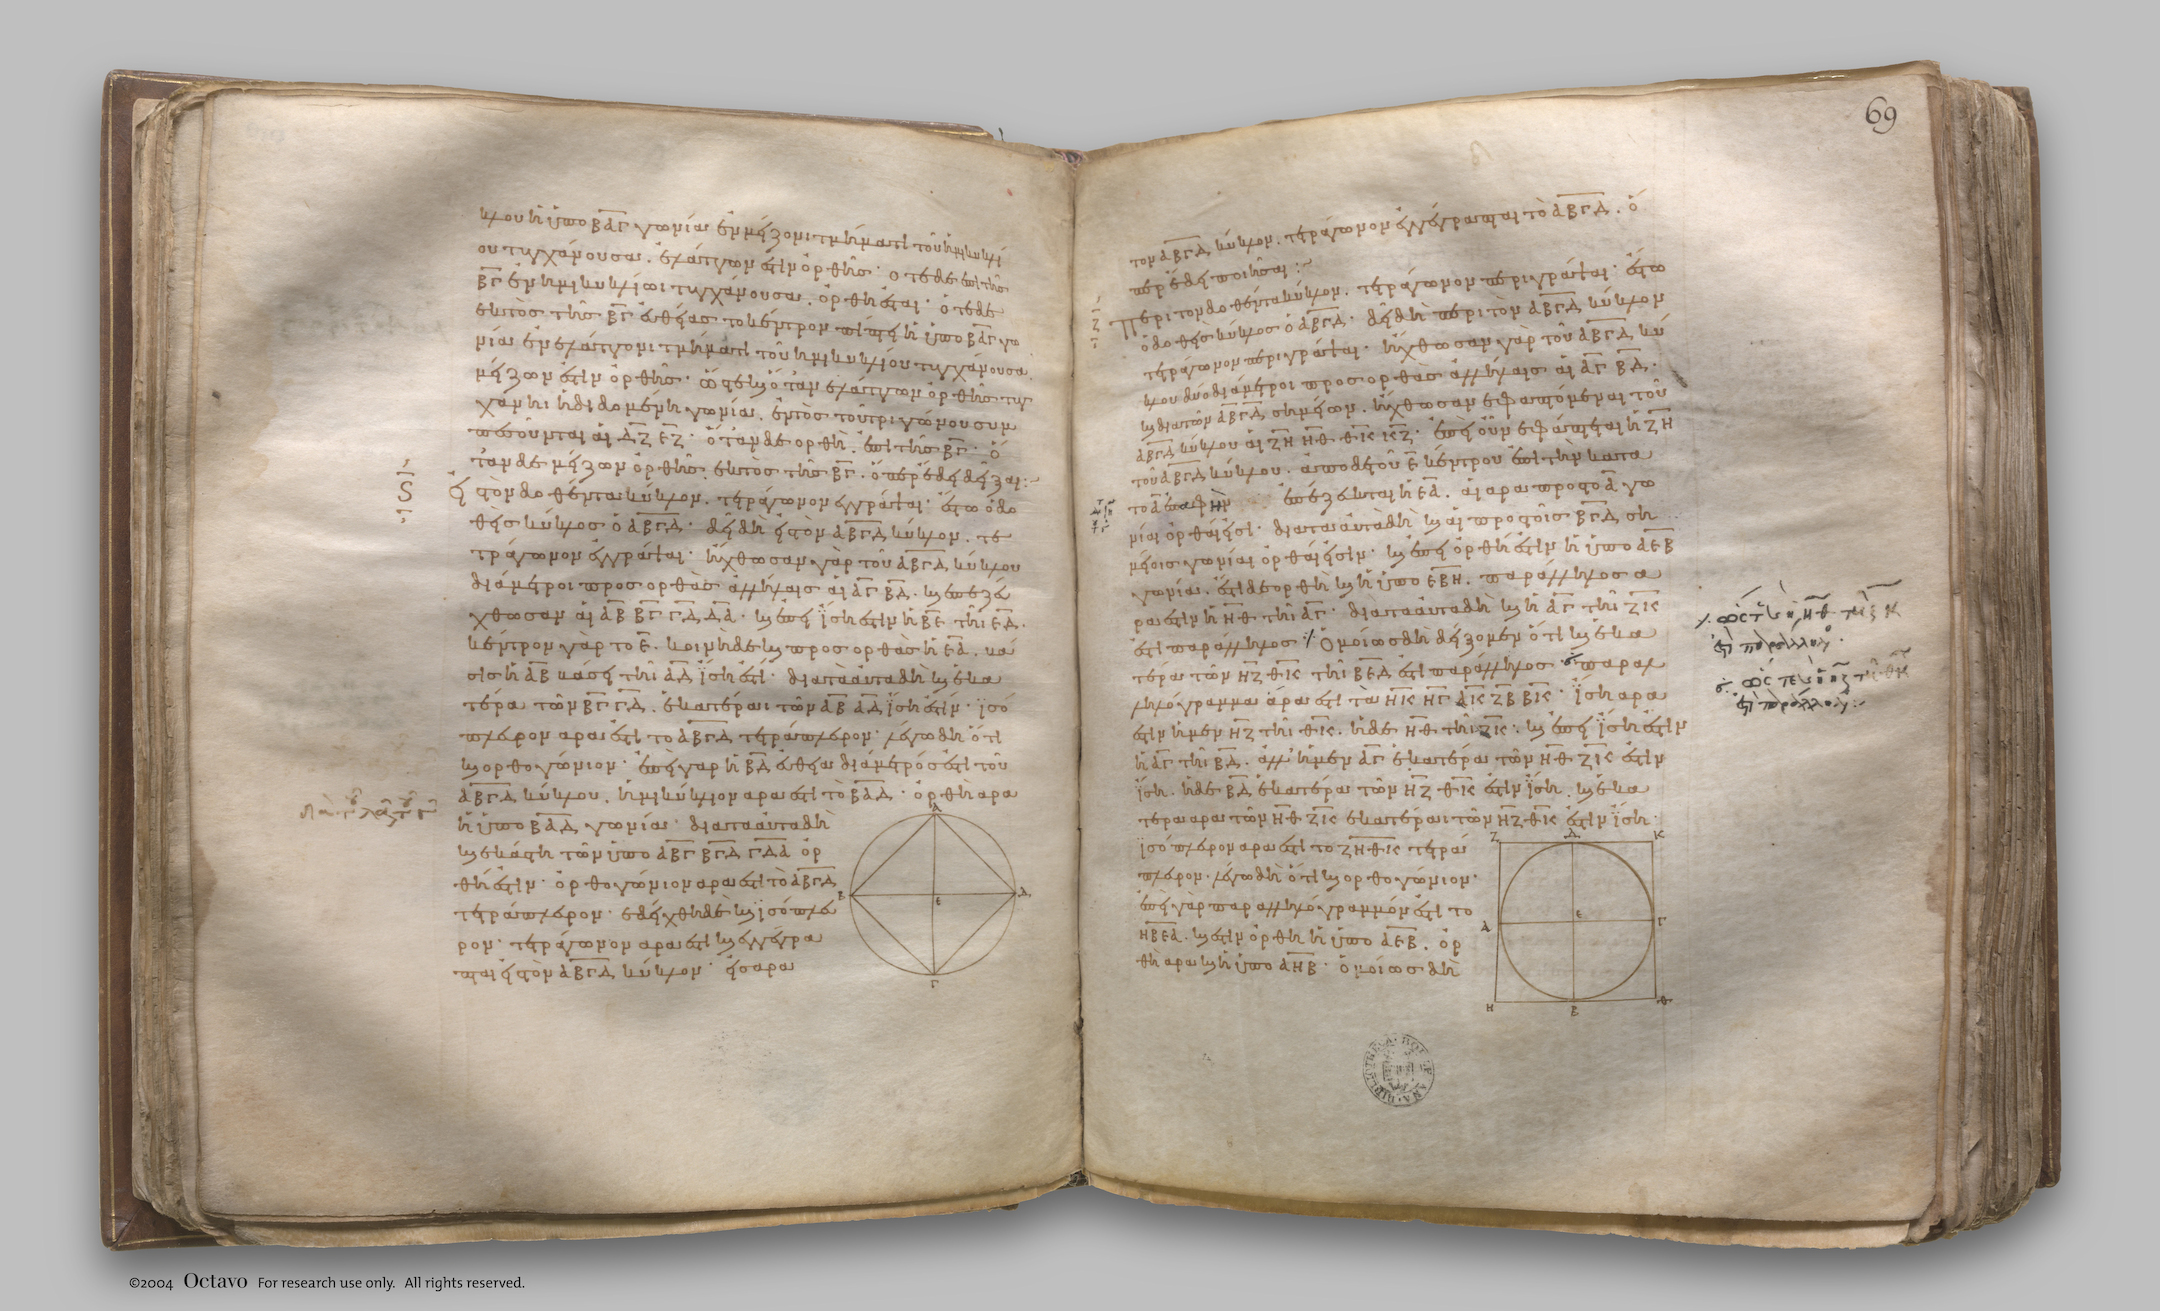 κλου ἡ ὑπὸ ΒΑΓ γωνία ἐν μείζονι τμήματι τοῦ ἡμικυκλί
ου τυγχάνουσα. ἐλάττων ἐστὶν ὀρθῆς· ὅτε δὲ ἐπὶ τῆς
ΒΓ ἐν ἡμικυκλίωι τυγχάνουσα, ὀρθὴ ἔσται· ὅτε δὲ
ἐκτὸς τῆς ΒΓ εὐθείας τὸ κέντρον πίπτει ἡ ὑπὸ ΒΑΓ γω
νία ἐν ἐλάττονι τμήματι τοῦ ἡμικυκλίου τυγχάνουσα
μείζων ἐστὶν ὀρθῆς· ὥστε καὶ ὅταν ἐλάττων ὀρθῆς τυγ
χάνηι ἡ διδομένη γωνία. ἐντὸς τοῦ τριγώνου συμ
πεσοῦνται αἱ ΔΖ ΕΖ· ὅταν δὲ ὀρθὴ. ἐπὶ τῆς ΒΓ· ὅ
ταν δὲ μείζων ὀρθῆς. ἐκτὸς τῆς ΒΓ. ὅπερ ἔδει δεῖξαι:
Ϛ Εἰς τὸν δοθέντα κύκλον. τετράγωνον ἐγγράψαι· ἔστω ὁ δο
θεὶς κύκλος ὁ ΑΒΓΔ· δεῖ δὴ εἰς τὸν ΑΒΓΔ κύκλον. τε
τράγωνον ἐγγράψαι· ἤχθωσαν γὰρ τοῦ ΑΒΓΔ κύκλου
διάμετροι πρὸς ὀρθὰς ἀλλήλαις αἱ ΑΓ ΒΔ. καὶ ἐπεζεύ
χθωσαν αἱ ΑΒ ΒΓ ΓΔ ΔΑ· καὶ ἐπεὶ ἴση ἐστὶν ἡ ΒΕ τῆι ΕΔ.
κέντρον γὰρ τὸ Ε. κοινὴ δὲ καὶ πρὸς ὀρθὰς ἡ ΕΑ. βά
σις ἡ ΑΒ βάσει τῆι ΑΔ ἴση ἐστί· διὰ τὰ αὐτὰ δὴ καὶ ἑκα
τέρα τῶν ΒΓ ΓΔ. ἑκατέραι τῶν ΑΒ ΑΔ ἴση ἐστίν· ἰσό
πλευρον ἄρα ἐστὶ τὸ ΑΒΓΔ τετράπλευρον· λέγω δὴ ὅτι
καὶ ὀρθογώνιον· ἐπεὶ γὰρ ἡ ΒΔ εὐθεῖα διάμετρός ἐστι τοῦ
ΑΒΓΔ κύκλου. ἡμικύκλιον ἄρα ἐστὶ τὸ ΒΑΔ· ὀρθὴ ἄρα
ἡ ὑπὸ ΒΑΔ γωνία· διὰ τὰ αὐτὰ δὴ
καὶ ἑκάστη τῶν ὑπὸ ΑΒΓ ΒΓΔ ΓΔΑ ὀρ
θή ἐστιν· ὀρθογώνιον ἄρα ἐστὶ τὸ ΑΒΓΔ
τετράπλευρον· ἐδείχθη δὲ καὶ ἰσόπλευ
ρον· τετράγωνον ἄρα ἐστὶ καὶ ἐγγέγρα
πται εἰς τὸν ΑΒΓΔ κύκλον· εἰς ἄρα
Α
Β Ε Δ
Γ
69
τὸν ΑΒΓΔ κύκλον. τετράγωνον ἐγγέγραπται τὸ ΑΒΓΔ. ὅ
περ ἔδει ποιῆσαι:
Ζ Περὶ τὸν δοθέντα κύκλον. τετράγωνον περιγράψαι· ἔστω
ὁ δοθεὶς κύκλος ὁ ΑΒΓΔ· δεῖ δὴ περὶ τὸν ΑΒΓΔ κύκλον
τετράγωνον περιγράψαι· ἤχθωσαν γὰρ τοῦ ΑΒΓΔ κύ
κλου δύο διάμετροι πρὸς ὀρθὰς ἀλλήλαις αἱ ΑΓ ΒΔ.
καὶ διὰ τῶν ΑΒΓΔ σημείων. ἤχθωσαν ἐφαπτόμεναι τοῦ
ΑΒΓΔ κύκλου αἱ ΖΗ ΗΘ ΘΚ ΚΖ· ἐπεὶ οὖν ἐφάπτεται ἡ ΖΗ
τοῦ ΑΒΓΔ κύκλου. ἀπὸ δὲ τοῦ Ε κέντρου ἐπὶ τὴν κατὰ
τὸ Α ἐπαφὴν ἐπέζευκται ἡ ΕΑ. αἱ ἄρα πρὸς τὸ Α γω
νίαι ὀρθαί εἰσι· διὰ τὰ αὐτὰ δὴ καὶ αἱ πρὸς τοῖς ΒΓΔ ση
μείοις γωνίαι ὀρθαί εἰσιν· καὶ ἐπεὶ ὀρθή ἐστιν ἡ ὑπὸ ΑΕΒ
γωνία. ἔστι δὲ ὀρθὴ καὶ ἡ ὑπὸ ΕΒΗ. παράλληλος ἄ
ρα ἐστὶν ἡ ΗΘ τῆι ΑΓ· διὰ τὰ αὐτὰ δὴ καὶ ἡ ΑΓ τῆι ΖΚ
ἐστὶ παράλληλος· Ὁμοίως δὴ δείξομεν ὅτι καὶ ἑκα
τέρα τῶν ΗΖ ΘΚ τῆι ΒΕΔ ἐστὶ παράλληλος· παραλ
ληλόγραμμα ἄρα ἐστὶ τὰ ΗΚ ΗΓ ΑΚ ΖΒ ΒΚ· ἴση ἄρα
ἐστὶν ἡ μὲν ΗΖ τῆι ΘΚ. ἡ δὲ ΗΘ τῆι ΖΚ· καὶ ἐπεὶ ἴση ἐστὶν
ἡ ΑΓ τῆι ΒΔ. ἀλλ' ἡ μὲν ΑΓ ἑκατέρα τῶν ΗΘ ΖΚ ἐστὶν
ἴση. ἡ δὲ ΒΔ ἑκατέρα τῶν ΗΖ ΘΚ ἐστὶν ἴση. καὶ ἑκα
τέρα ἄρα τῶν ΗΘ ΖΚ ἑκατέραι τῶν ΗΖ ΘΚ ἐστὶν ἴση·
ἰσόπλευρον ἄρα ἐστὶ τὸ ΖΗΘΚ τετρά
πλευρον. λέγω δὴ ὅτι καὶ ὀρθογώνιον·
ἐπεὶ γὰρ παραλληλόγραμμόν ἐστι τὸ
ΗΒΕΑ. καί ἐστιν ὀρθὴ ἡ ὑπὸ ΑΕΒ. ὀρ
θὴ ἄρα καὶ ἡ ὑπὸ ΑΗΒ· ὁμοίως δὴ
Ζ Δ Κ
Α Ε Γ
Η Β Θ
©2004 Octavo For research use only. All rights reserved.